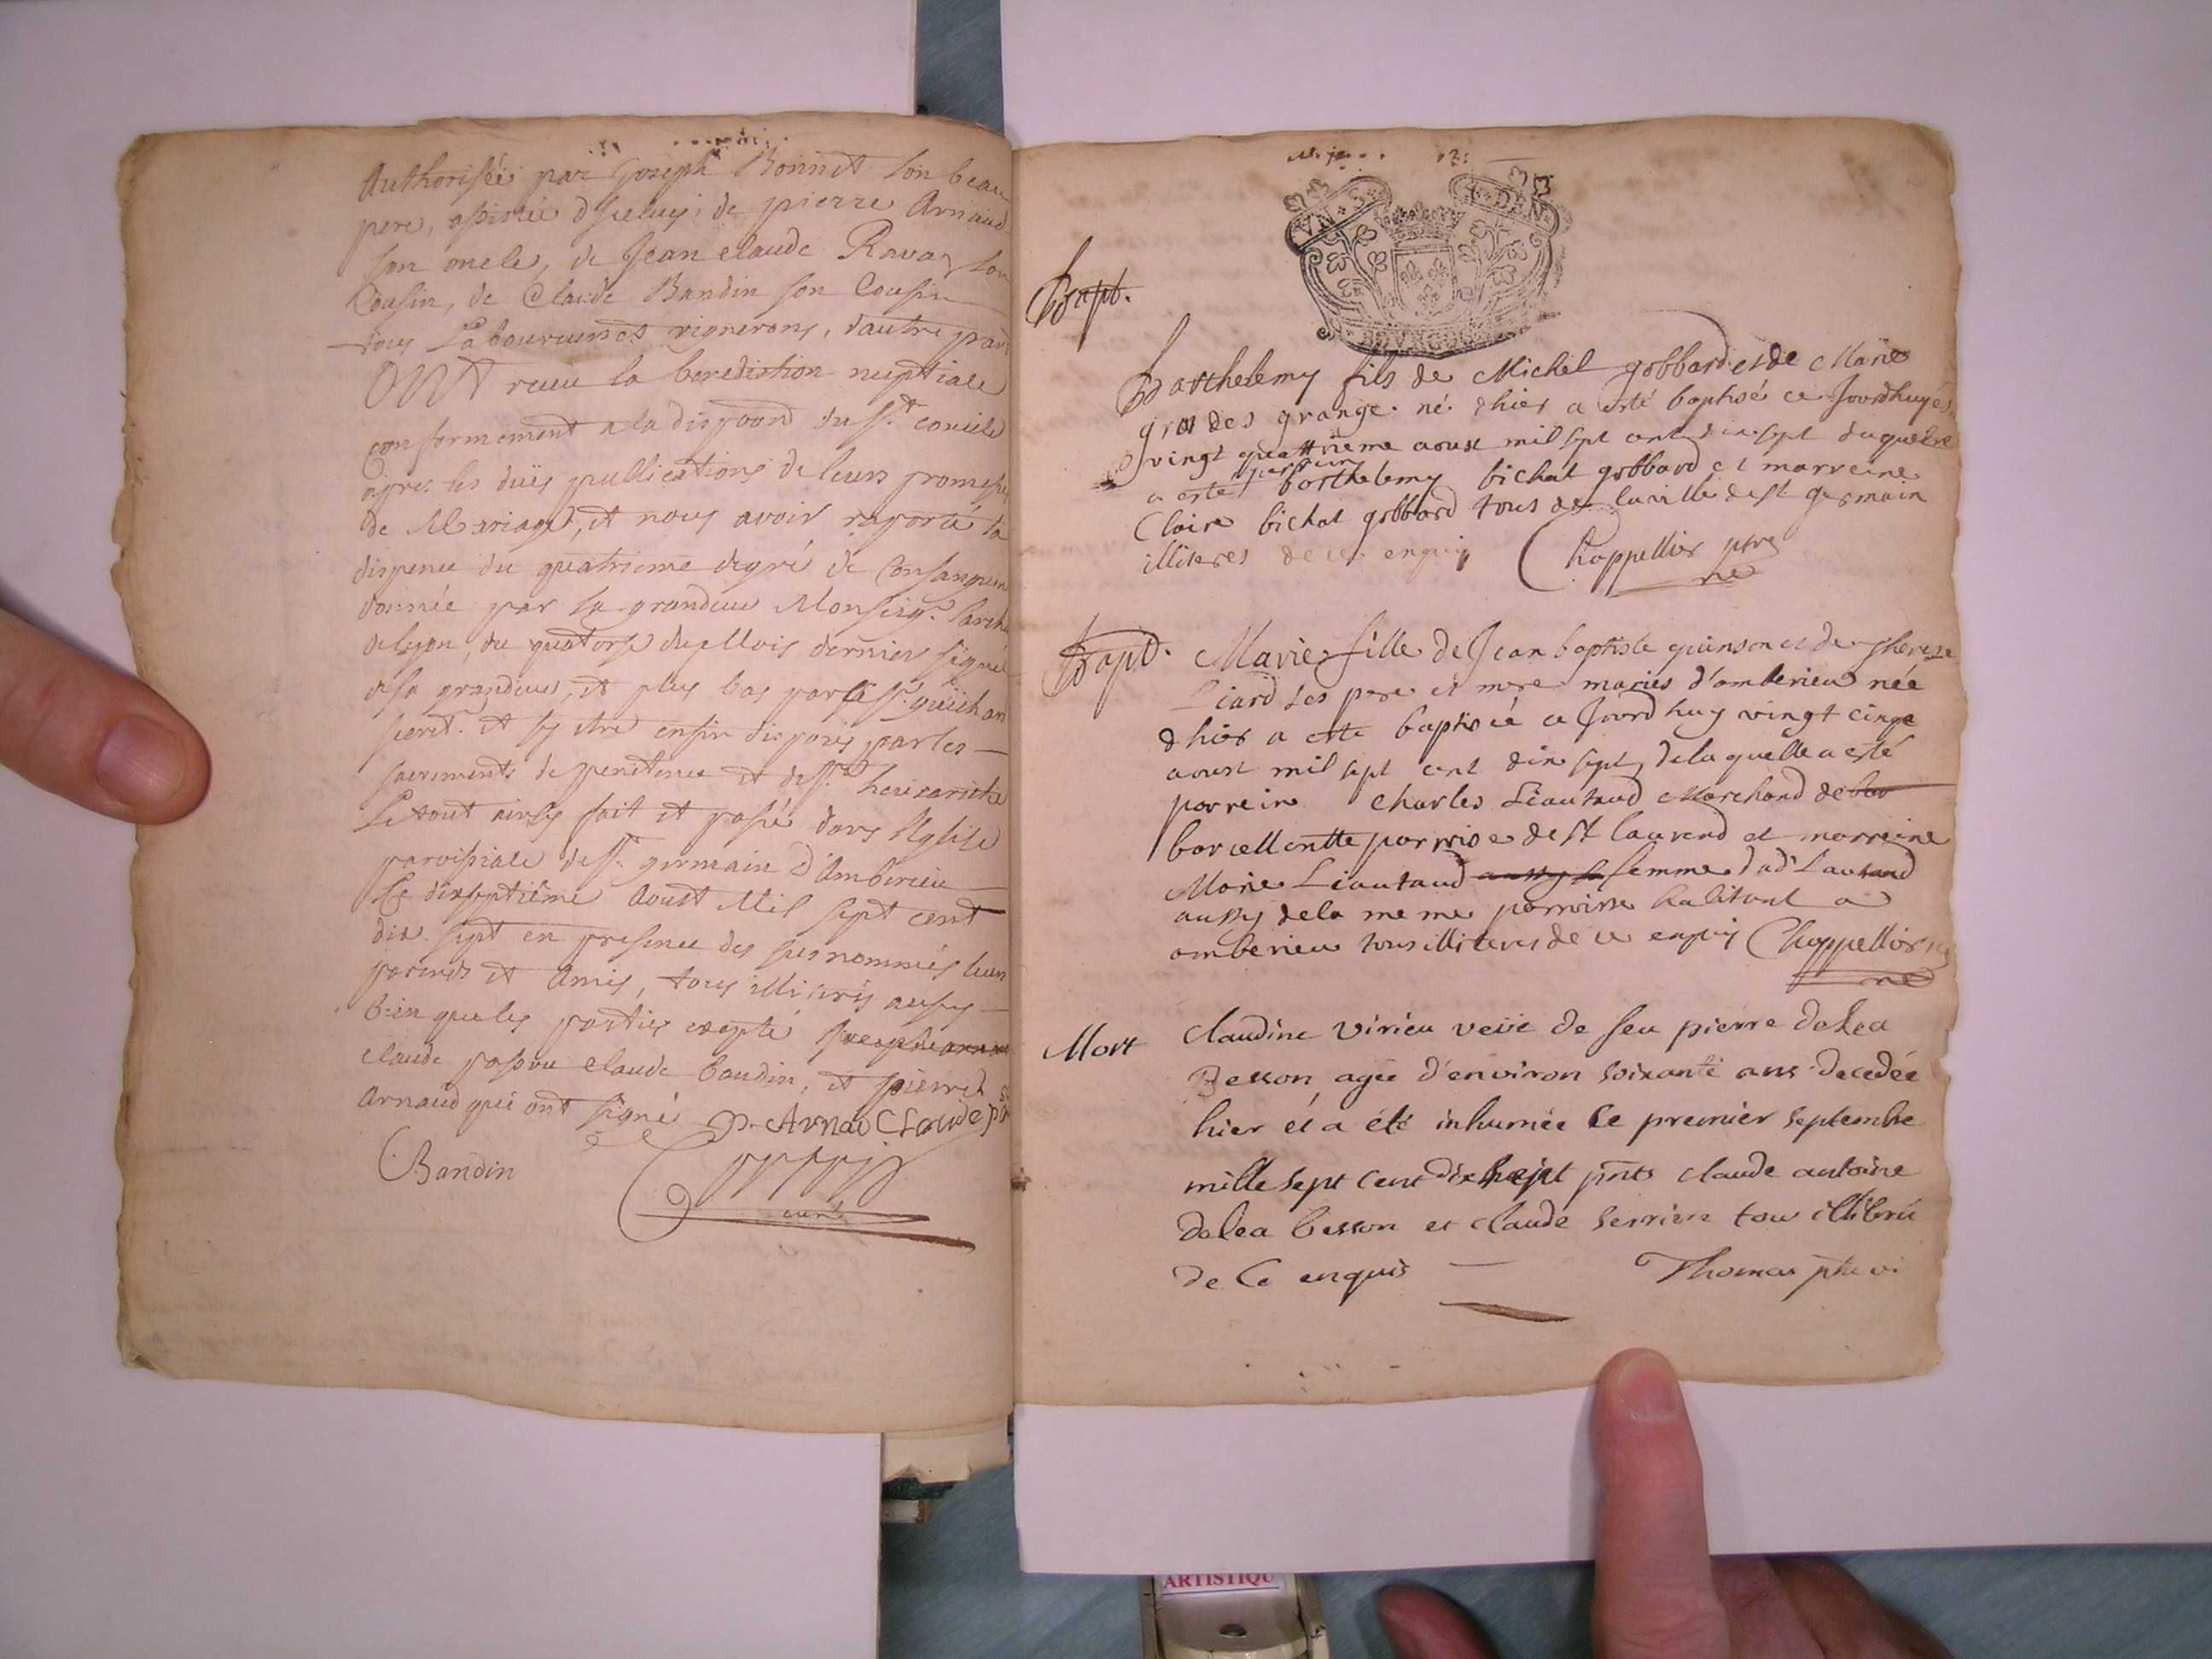 Authorisée par Joseph Bonnet son beau
pere, assistée d'iceluy, de pierre Arnaud
son oncle, de Jean claude Ravaz son
Cousin, de Claude Bandin son Cousin
tous Laboureurs et vignerons, d'autre part
ONT receu la benediction nuptiale
conformement a la dispoon du st. concile
apres les duës publications de leurs promesses
de Mariage, et nous avoir raporté la
dispense du quatrieme degré de Consanguin
donnée par sa grandeur Monseigr. l'arche
de lyon, du quatorse du Mois dernier signée
de sa grandeur, et plus bas par
secret. et s'y etre enfin disposés par les
sacrements de penitence et de st.
Le tout ainsy fait et passé dans l'Eglise
parroissiale de st. germain d'Amberieu
Le dixseptième Aoust Mil sept cent
dix sept en presence des susnommés leurs
parents et Amis, tous illiterés aussy
bien que les parties excepté
claude claude bandin, et pierre
Arnaud qui ont signé P. Arnau CLaude
Bandin
curé
Bapt.
Barthelemy fils de Michel gobbard et de Marie
gros des grange né d'hier a esté baptisé ce Jourdhuy
vingt quattrieme aoust mil sept cent dix sept duquel
a esté parrein barthelemy bichat gobbard et marreine
Claire bichat gobbard tous de la ville de st germain
illiteres de ce enquis Chappellier ptre
Bapt. Marie fille de Jean baptiste quinson et de therese
Liard ses pere et mere mariés d'amberieu née
d'hier a esté baptisée ce Jourd'huy vingt cinqe
aoust mil sept cent dix sept, de la quelle a esté
parrein Charles Lieautaud Marchand de
barcellontte parroise de st laurend et marreine
Marie Lieautaud femme dud Lautaud
aussy de la meme parroisse habitant a
amberieu tous illiteres de ce enquis Chappellier
Mort claudine virieu veüe de feu pierre delea
Besson agée d'environ soixante ans decedée
hier et a été inhumée le premier septembre
mille sept cent dix sept pnts claude antoine
delea besson et claude serriere tous illiteré
de Ce enquis Thomas ptre vi
ARTISTIQU